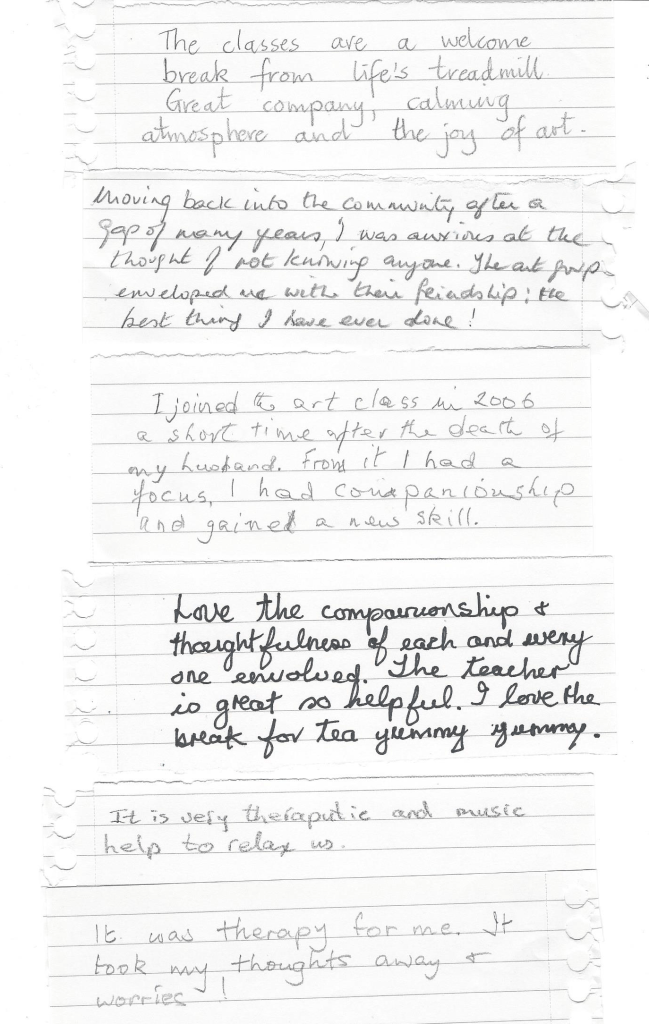 The classes are a welcome
break from life's treadmill.
Great company, calming
atmosphere and the joy of art.
Moving back into the community after a
gap of many years, I was anxious at the
thought of not knowing anyone. The art group
enveloped me with their feindship; the
best thing I have ever done!
I joined the art class in 2006
a short time after the death of
my husband. From it I had a
focus, I had companionship
and gained a new skill.
Love the companionship &
thoughtfulness of each and every
one envolved. The teacher
is great so helpful. I love the
break for tea yummy yummy.
It is very theraputic and music
help to relax us.
It was therapy for me. It
took my thoughts away &
worries!